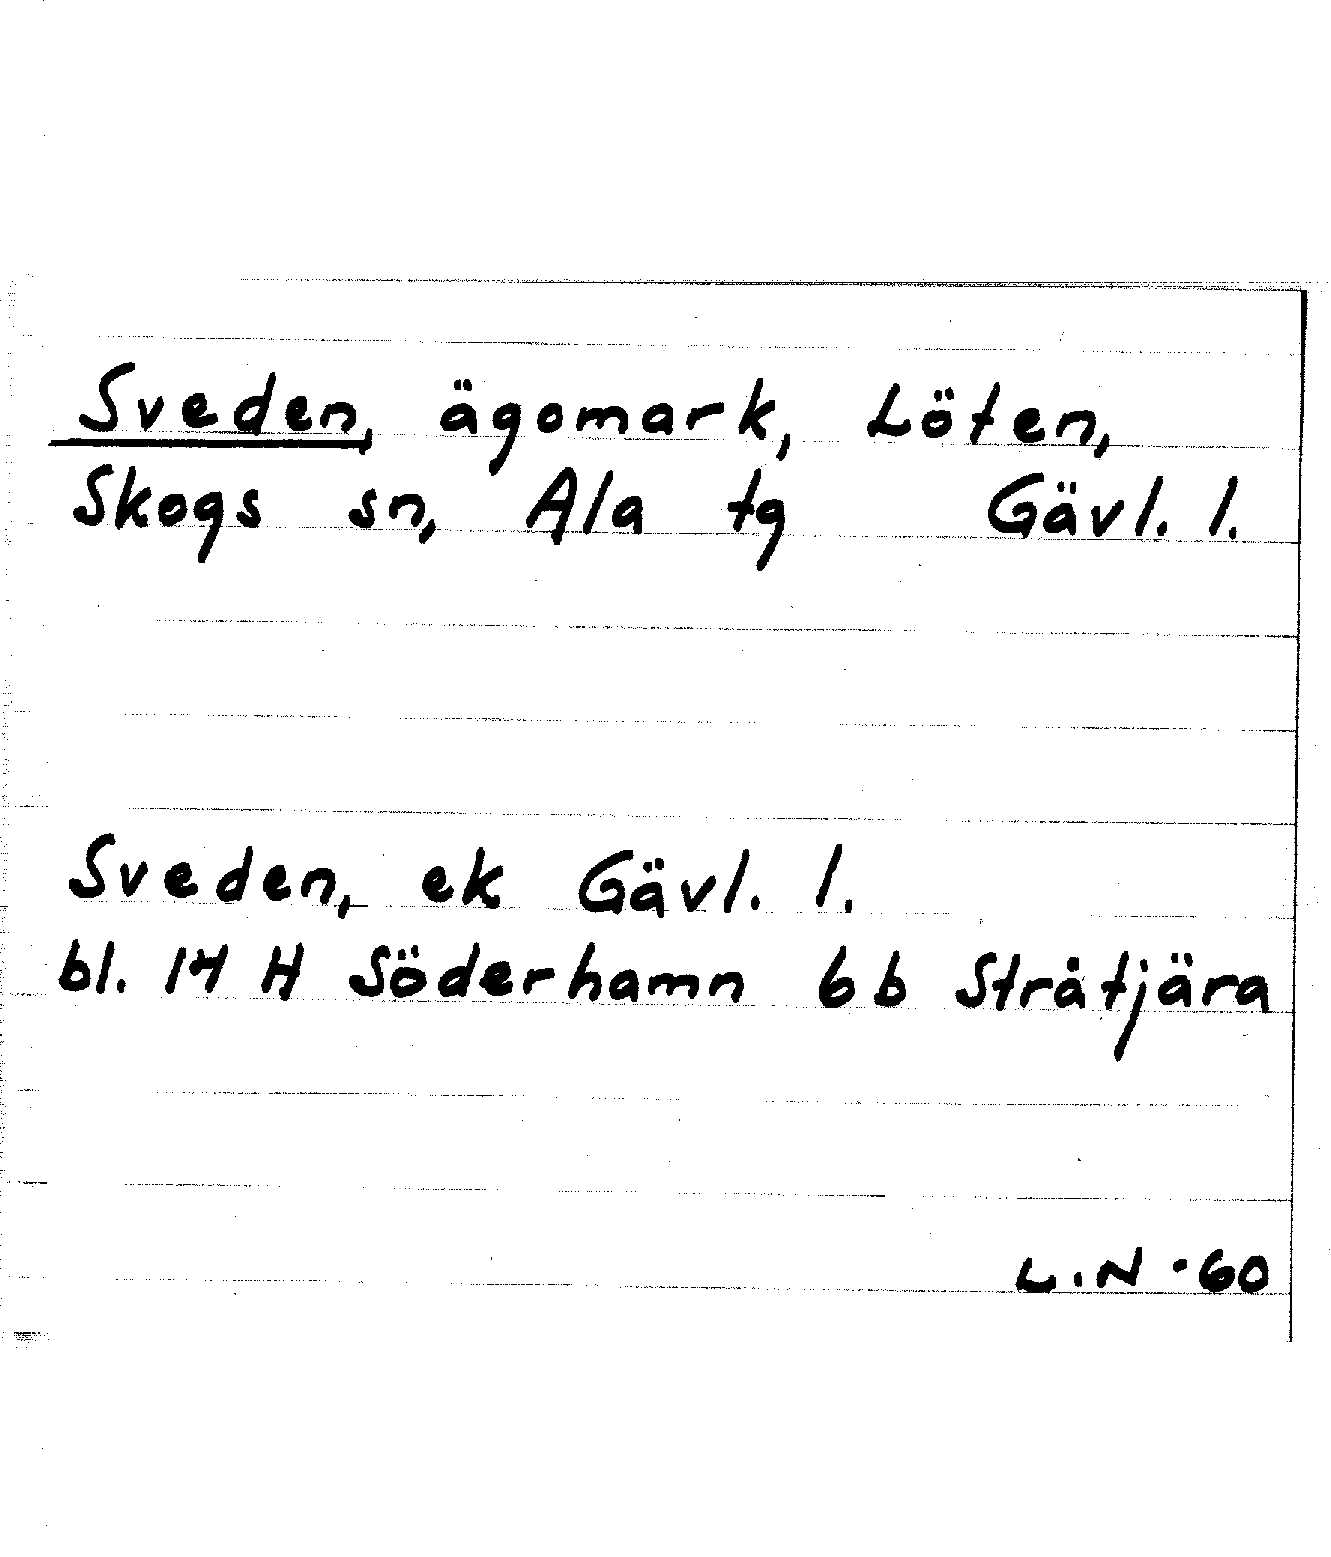 Sveden, ägomark, Löten,
Skogs sn, Ala tg Gävl. l.
Sveden, ek Gävl. l.
bl. 14 H Söderhamn 6b Stråtjära
L.N -60